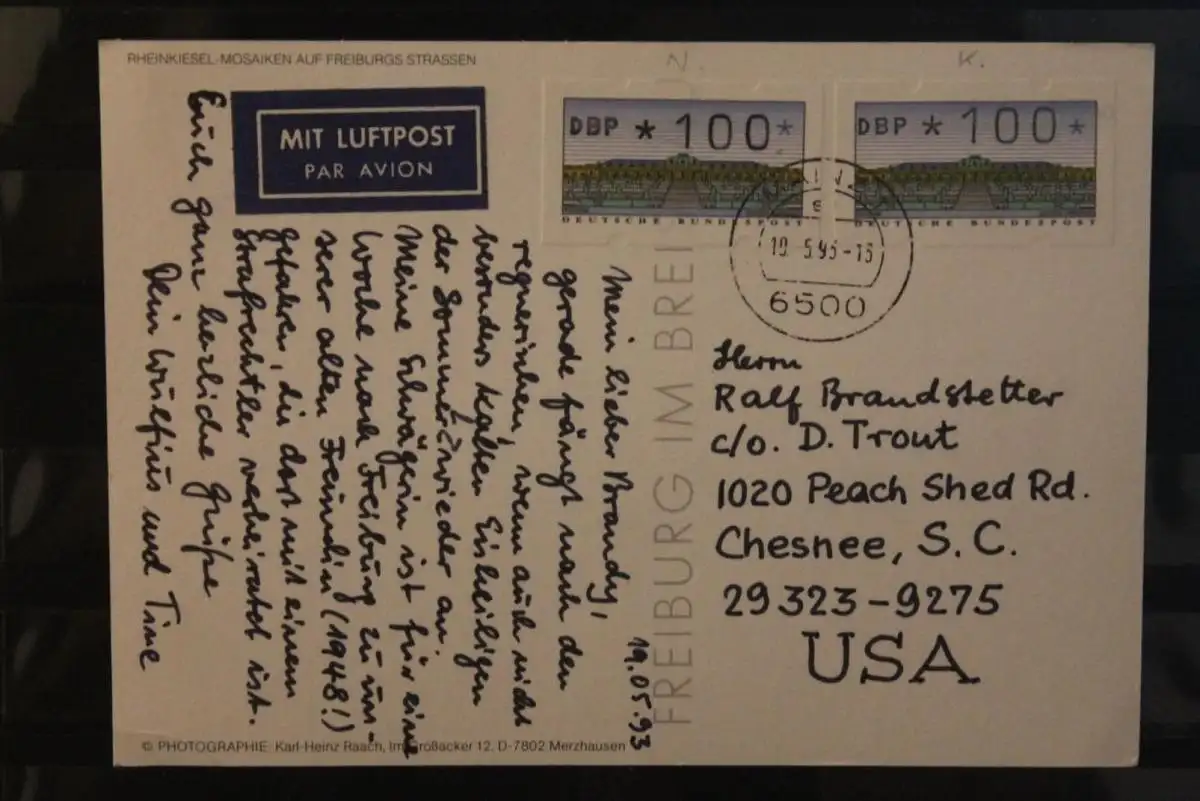 RHEINKIESEL-MOSAIKEN AUF FREIBURGS STRASSEN
MIT LUFTPOST
PAR AVION
DBP *100*
DEUTSCHE BUNDESPOST
DBP * 100 *
DEUTSCHE BUNDESPOST
19.5.93-13
6500
19.05.93
Mein lieber Brandy,
gerade fängt nach den
regnerischen, wenn auch nicht
besonders kalten Eisheiligen
der Sommer wieder an.
Meine Schwägerin ist für eine
Woche nach Freiburg zu un-
serer alten Freundin (1948!)
gefahren, die dort mit einem
Strafrechtler verheiratet ist.
Euch ganz herzliche Grüße
Dein Wulfius und Tine
FREIBURG IM BREI
Herrn
Ralf Brandstetter
c/o. D. Trout
1020 Peach Shed Rd.
Chesnee, S. C.
29323-9275
USA
© PHOTOGRAPHIE: Karl-Heinz Raach, Im Großacker 12, D-7802 Merzhausen